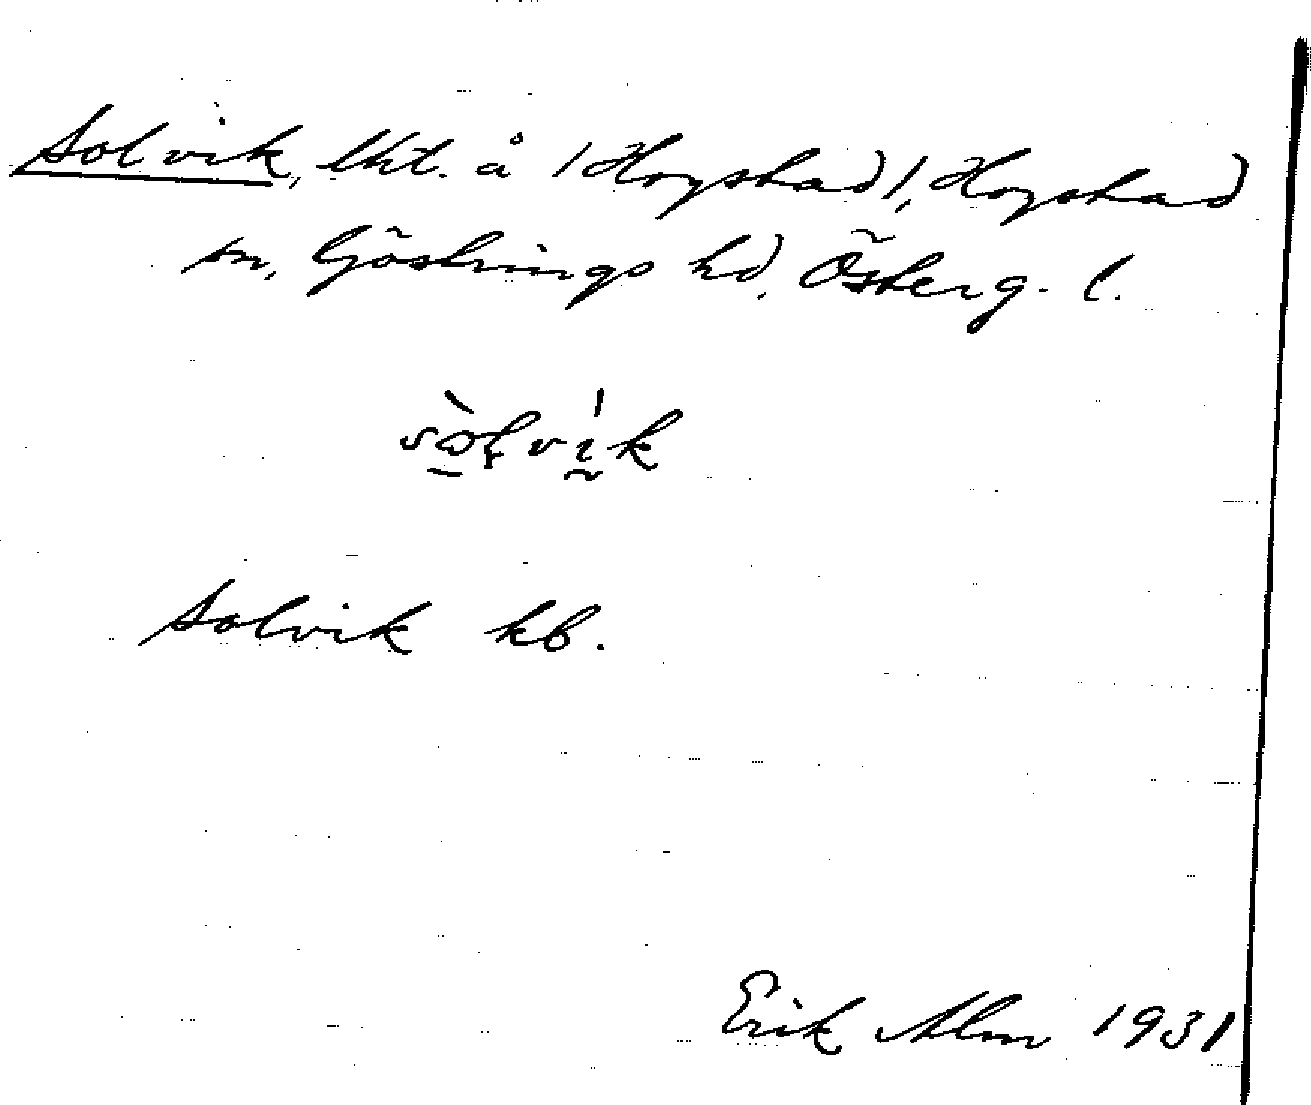 Solvik, lht. å /Hogstad/, Hogstad
sn, Göstrings hd, Österg. l.
Solvik kb.
Erik Alm 1931